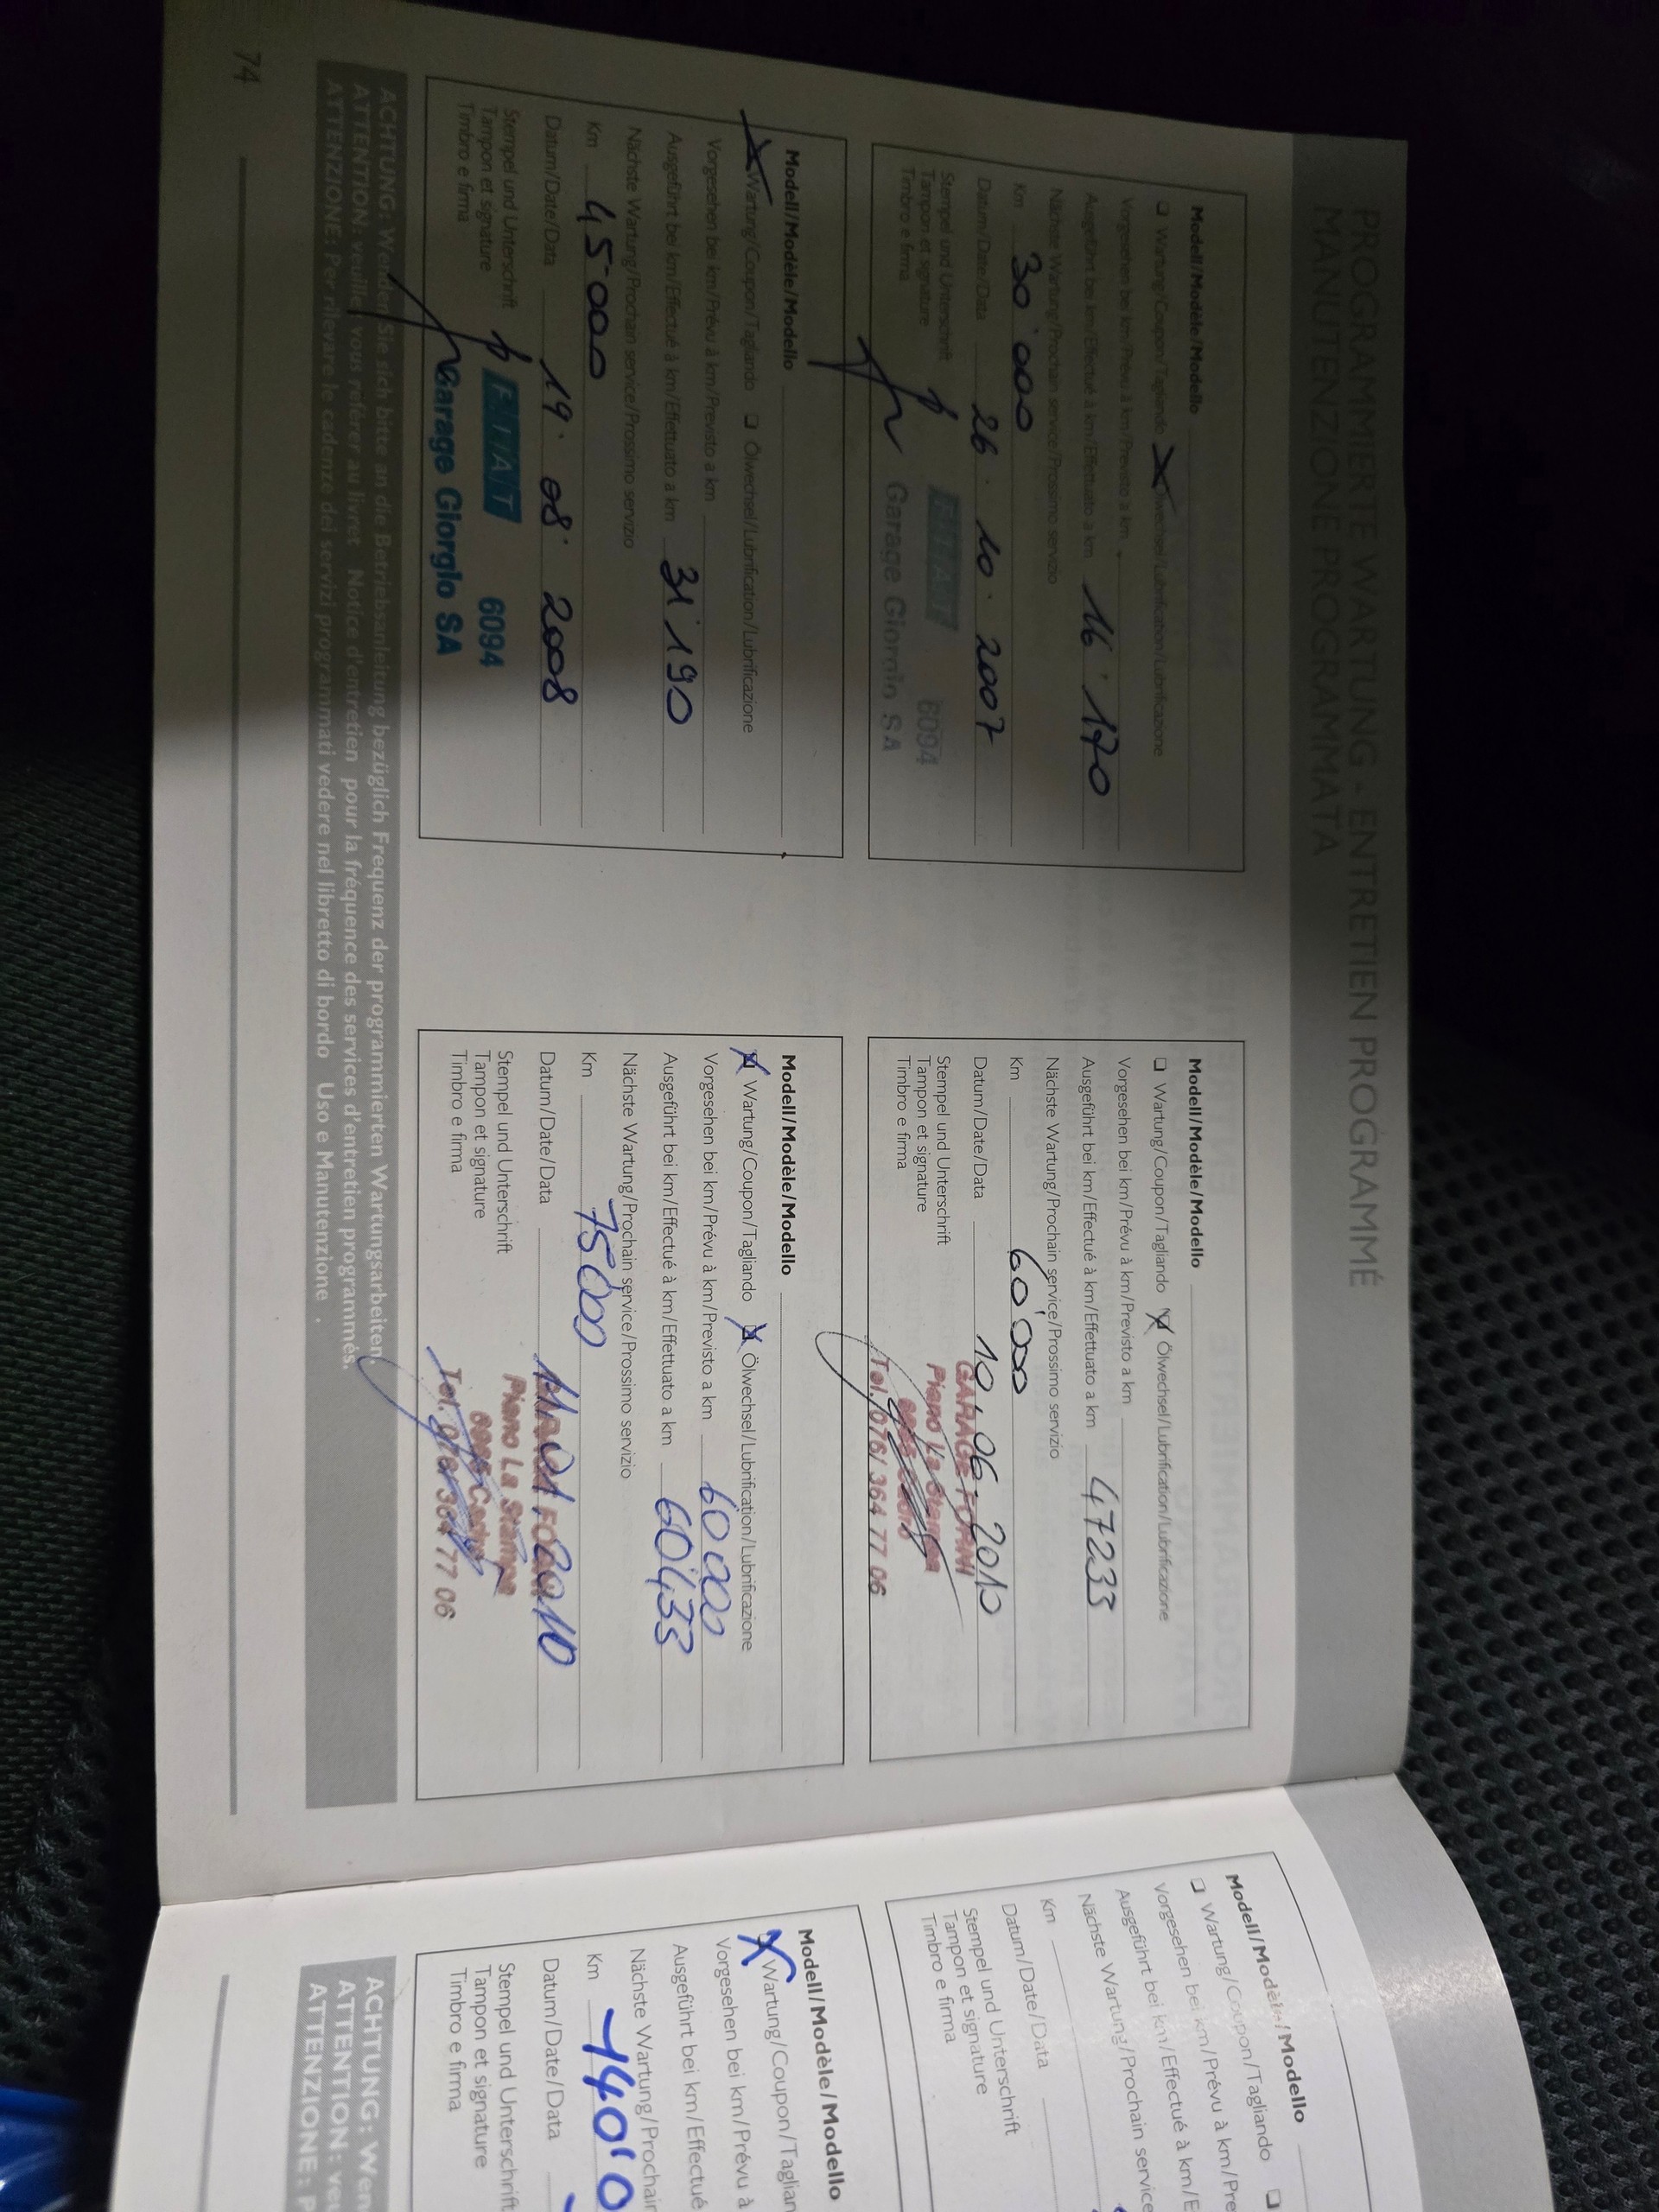 PROGRAMMIERTE WARTUNG - ENTRETIEN PROGRAMMÉ
MANUTENZIONE PROGRAMMATA
Modell/Modèle/Modello
❏ Wartung/Coupon/Tagliando X Ölwechsel/Lubrification/Lubrificazione
Vorgesehen bei km/Prévu à km/Previsto a km
Ausgeführt bei km/Effectué à km/Effettuato a km 16'170
Nächste Wartung/Prochain service/Prossimo servizio
Km 30'000
Datum/Date/Data 26.10.2007
Stempel und Unterschrift
Tampon et signature
Timbro e firma
FIAT 6094
Garage Giorgio SA
Modell/Modèle/Modello
X Wartung/Coupon/Tagliando ❏ Ölwechsel/Lubrification/Lubrificazione
Vorgesehen bei km/Prévu à km/Previsto a km
Ausgeführt bei km/Effectué à km/Effettuato a km 31'190
Nächste Wartung/Prochain service/Prossimo servizio
Km 45'000
Datum/Date/Data 19.08.2008
Stempel und Unterschrift
Tampon et signature
Timbro e firma
FIAT 6094
Garage Giorgio SA
Modell/Modèle/Modello
❏ Wartung/Coupon/Tagliando X Ölwechsel/Lubrification/Lubrificazione
Vorgesehen bei km/Prévu à km/Previsto a km
Ausgeführt bei km/Effectué à km/Effettuato a km 47233
Nächste Wartung/Prochain service/Prossimo servizio
Km 60'000
Datum/Date/Data 10.06.2010
Stempel und Unterschrift
Tampon et signature
Timbro e firma
GARAGE
Piano La Stampa
Tel. 076/ 364 77 06
Modell/Modèle/Modello
X Wartung/Coupon/Tagliando X Ölwechsel/Lubrification/Lubrificazione
Vorgesehen bei km/Prévu à km/Previsto a km 60000
Ausgeführt bei km/Effectué à km/Effettuato a km 60'433
Nächste Wartung/Prochain service/Prossimo servizio
Km 75000
Datum/Date/Data
Stempel und Unterschrift
Tampon et signature
Timbro e firma
Piano La Stampa
Tel. 076/ 364 77 06
ACHTUNG: Wenden Sie sich bitte an die Betriebsanleitung bezüglich Frequenz der programmierten Wartungsarbeiten.
ATTENTION: veuillez vous référer au livret Notice d'entretien pour la fréquence des services d'entretien programmés.
ATTENZIONE: Per rilevare le cadenze dei servizi programmati vedere nel libretto di bordo Uso e Manutenzione .
74
Modell/Modèle/Modello
❏ Wartung/Coupon/Tagliando ❏
Vorgesehen bei km/Prévu à km/Pre
Ausgeführt bei km/Effectué à km/E
Nächste Wartung/Prochain service
Km
Datum/Date/Data
Stempel und Unterschrift
Tampon et signature
Timbro e firma
Modell/Modèle/Modello
X Wartung/Coupon/Taglian
Vorgesehen bei km/Prévu à
Ausgeführt bei km/Effectué
Nächste Wartung/Prochain
Km 140'0
Datum/Date/Data
Stempel und Unterschrift
Tampon et signature
Timbro e firma
ACHTUNG: Wen
ATTENTION: veu
ATTENZIONE: P